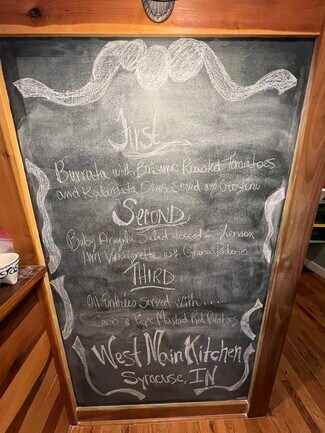 First
Burrata with Balsamic Roasted Tomatoes
and Kalamata Olives Served w/ Crostini
Second
Baby Arugula Salad dressed in Lemon
Vinaigrette w/ Grana Padano
Third
Entrées Served with...
Cacio e Pepe Mustard Red Potatoes
West Main Kitchen
Syracuse, IN